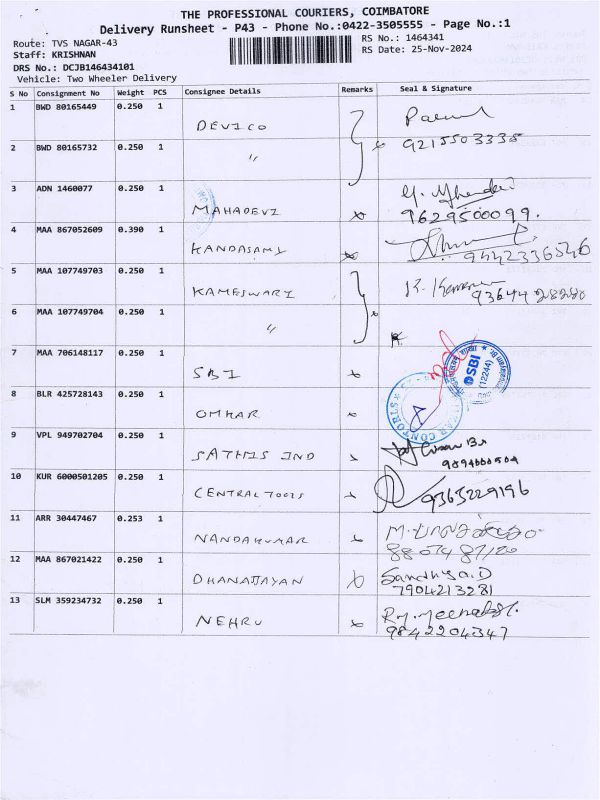 THE PROFESSIONAL COURIERS, COIMBATORE
Delivery Runsheet - P43 - Phone No.:0422-3505555 - Page No.:1
Route: TVS NAGAR-43
RS No.: 1464341
Staff: KRISHNAN
RS Date: 25-Nov-2024
DRS No.: DCJB146434101
Vehicle: Two Wheeler Delivery
S No Consignment No Weight PCS Consignee Details Remarks Seal & Signature
1 BWD 80165449 0.250 1
DEVICO
9215503335
2 BWD 80165732 0.250 1
"
3 ADN 1460077 0.250 1
MAHADEVI
9629500099.
4 MAA 867052609 0.390 1
KANDASAMY
9442336546
5 MAA 107749703 0.250 1
KAMESWARI
6 MAA 107749704 0.250 1
"
7 MAA 706148117 0.250 1
SBI
SBI
(12244)
8 BLR 425728143 0.250 1
OMKAR
9 VPL 949702704 0.250 1
SATHIS IND
10 KUR 6000501205 0.250 1
CENTRAL TOOLS
9363229196
11 ARR 30447467 0.253 1
NANDAKUMAR
12 MAA 867021422 0.250 1
DHANAJAYAN
Sandhya.D
7904213281
13 SLM 359234732 0.250 1
NEHRU
9842204347